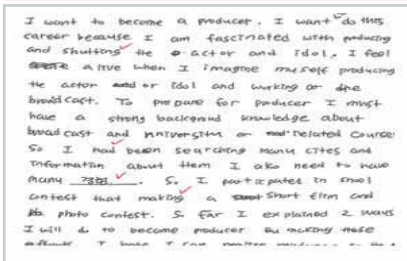 I want to become a producer. I want do this
career because I am fascinated with producing
and shutting the actor and idol. I feel
alive when I imagine myself producing
the actor or idol and working on the
broadcast. To prepare for producer I must
have a strong background knowledge about
broad cast and university or related course
So I had been searching many cites and
information about them I also need to have
many 경험. So I participated in
contest that making a short film and
photo contest. So far I explained 2 ways
I will do to become producer By making these
I hope I can realize